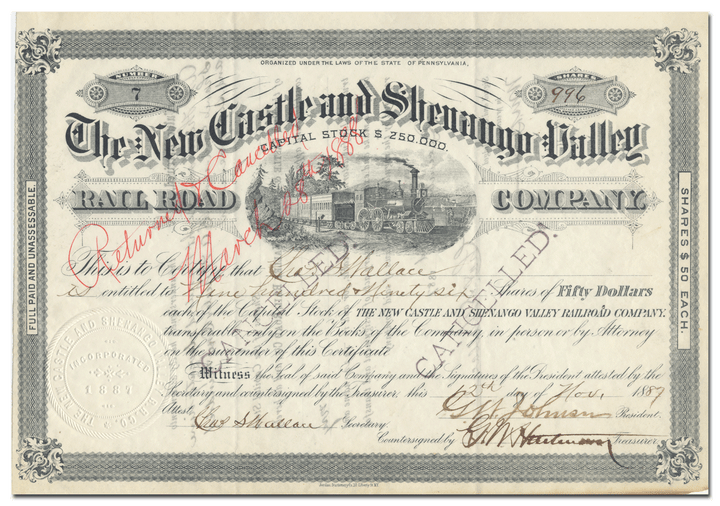 ORGANIZED UNDER THE LAWS OF THE STATE OF PENNSYLVANIA,
NUMBER
7
SHARES
996
The New Castle and Shenango Valley
CAPITAL STOCK $ 250.000.
RAIL ROAD COMPANY.
Returned & Cancelled
March 28th 1888
FULL PAID AND UNASSESSABLE.
SHARES $ 50 EACH.
This is to Certify that Chas S Wallace
is entitled to Nine hundred & Ninety six Shares of Fifty Dollars
each of the Capital Stock of THE NEW CASTLE AND SHENANGO VALLEY RAILROAD COMPANY,
transferable only on the Books of the Company, in person or by Attorney
on the surrender of this Certificate.
CANCELLED.
CANCELLED.
Witness the Seal of said Company and the Signatures of the President attested by the
Secretary and countersigned by the Treasurer this 12th day of Nov. 1887
Attest
Chas S Wallace Secretary.
G W Johnson President.
Countersigned by Treasurer.
THE NEW CASTLE AND SHENANGO R.R. CO.
INCORPORATED
1887